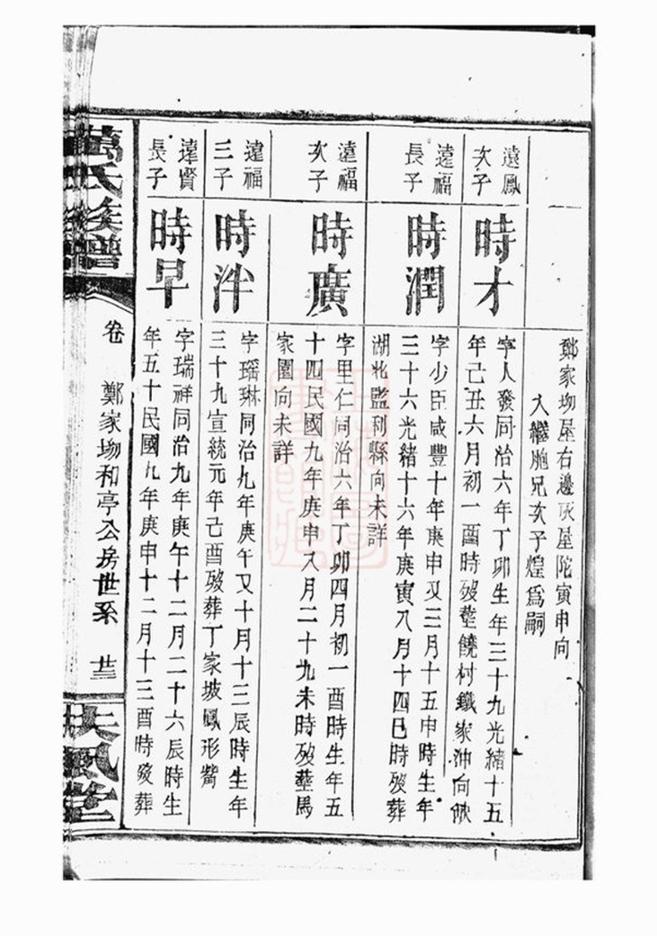 鄭家坳屋右邊灰屋陀寅申向
入繼胞兄次子煌爲嗣
遠鳳
次子
時才
字人發同治六年丁卯生年三十九光緒十五
年己丑六月初一酉時歿塟饒村鐵家沖向缺
遠福
長子
時潤
字少臣咸豐十年庚申又三月十五申時生年
三十六光緒十六年庚寅八月十四巳時歿葬
湖北監利縣向未詳
遠福
次子
時廣
字里仁同治六年丁卯四月初一酉時生年五
十四民國九年庚申八月二十九未時歿塟馬
家園向未詳
遠福
三子
時泮
字瑤琳同治九年庚午又十月十三辰時生年
三十九宣統元年己酉歿葬丁家坡鳳形嘴
遠賢
長子
時早
字瑞祥同治九年庚午十二月二十六辰時生
年五十民國九年庚申十二月十三酉時歿葬
萬氏族譜
卷
鄭家坳和亭公房世系
廿三
扶風堂